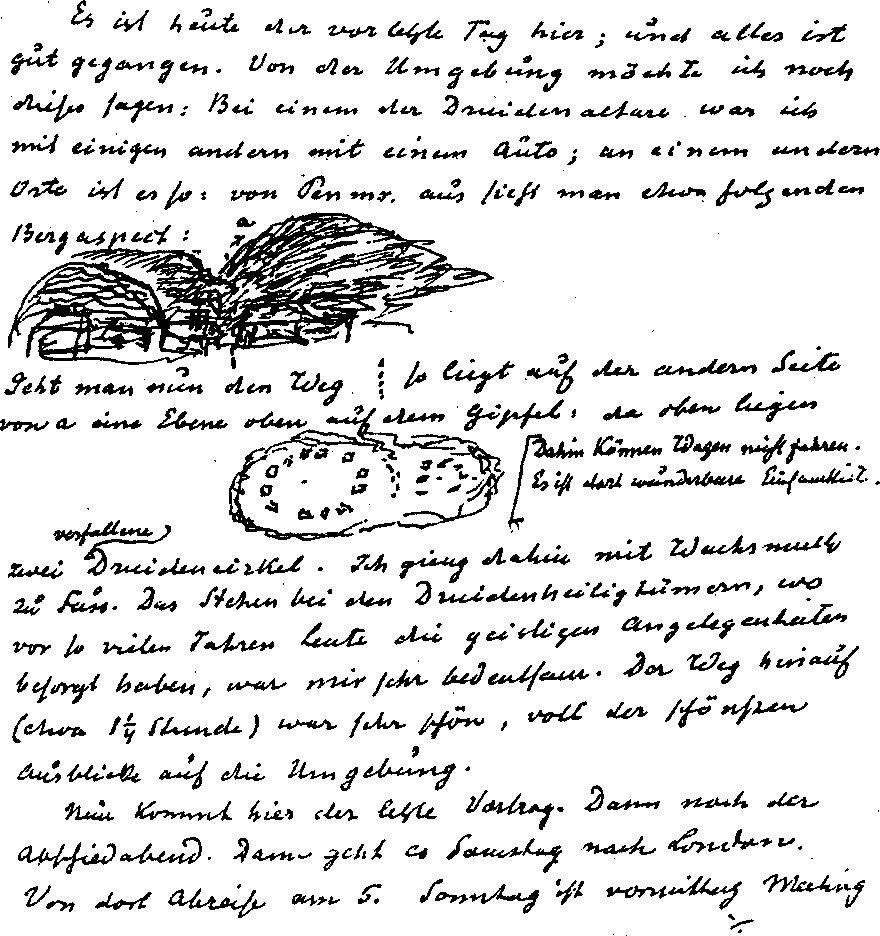 Es ist heute der vorletzte Tag hier; und alles ist
gut gegangen. Von der Umgebung möchte ich noch
dieses sagen: Bei einem der Druidenaltare war ich
mit einigen andern mit einem Auto; an einem andern
Orte ist es so: von Penmr. aus sieht man etwa folgenden
Bergaspect:
a
x
Geht man nun den Weg so liegt auf der andern Seite
von a eine Ebene oben auf dem Gipfel: da oben liegen
Dahin können Wagen nicht fahren.
Es ist dort wunderbare Einsamkeit.
verfallene
zwei Druidencirkel. Ich gieng dahin mit Wachsmuth
zu Fuss. Das Stehen bei den Druidenheiligtümern, wo
vor so vielen Jahren Leute die geistigen Angelegenheiten
besorgt haben, war mir sehr bedeutsam. Der Weg hinauf
(etwa 1¼ Stunde) war sehr schön, voll der schönsten
Ausblicke auf die Umgebung.
Nun kommt hier der letzte Vortrag. Dann noch der
Abschiedabend. Dann geht es Samstag nach London.
Von dort Abreise am 5. Sonntag ist vormittag Meeting